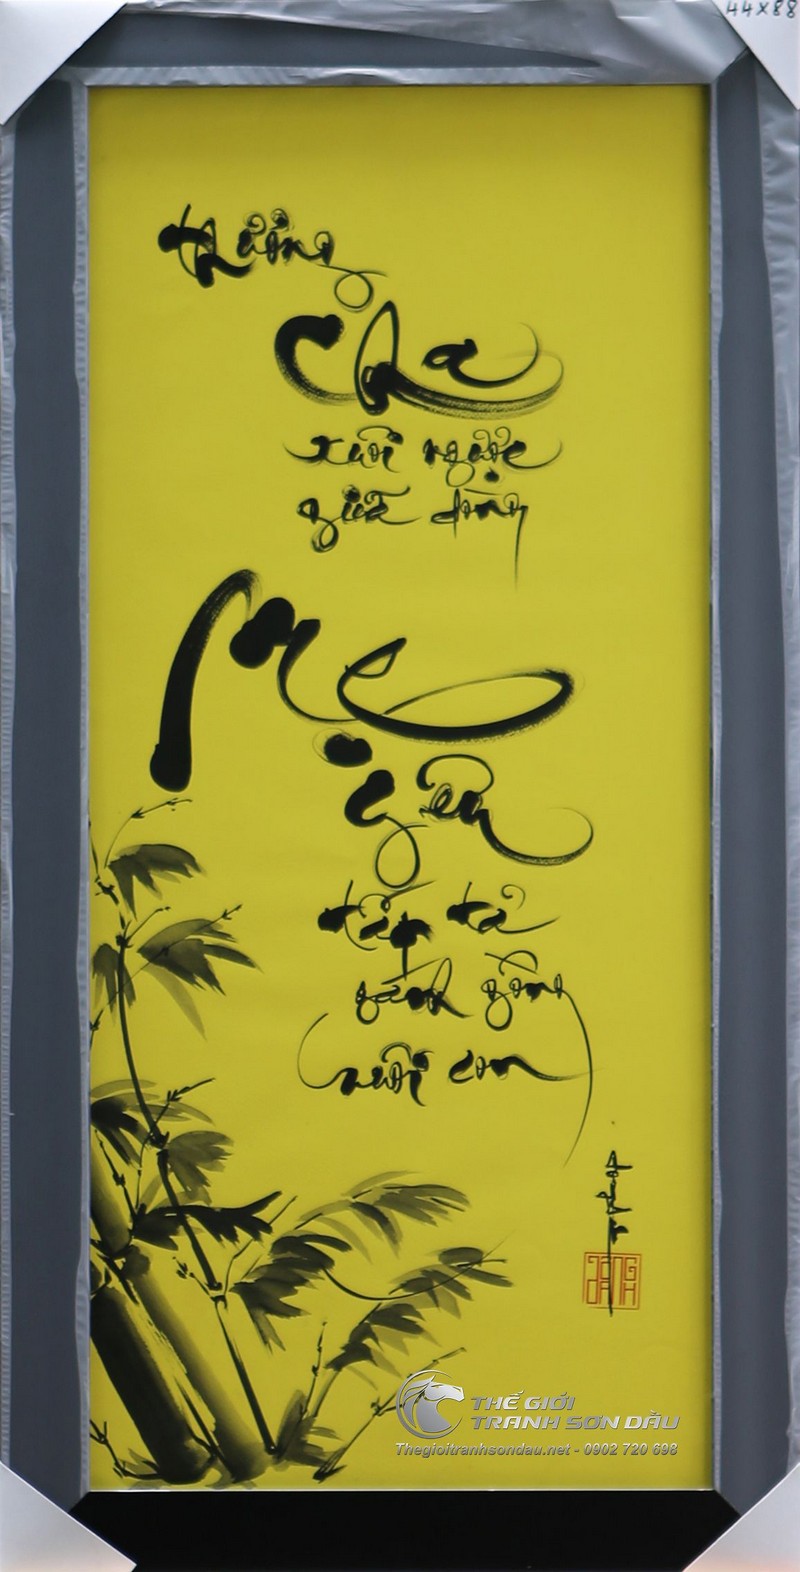 44x88
thương
Cha
xuôi ngược
giữa dòng
Mẹ
yêu
tần tảo
gánh gồng
nuôi con
THẾ GIỚI
TRANH SƠN DẦU
Thegioitranhsondau.net - 0902 720 698